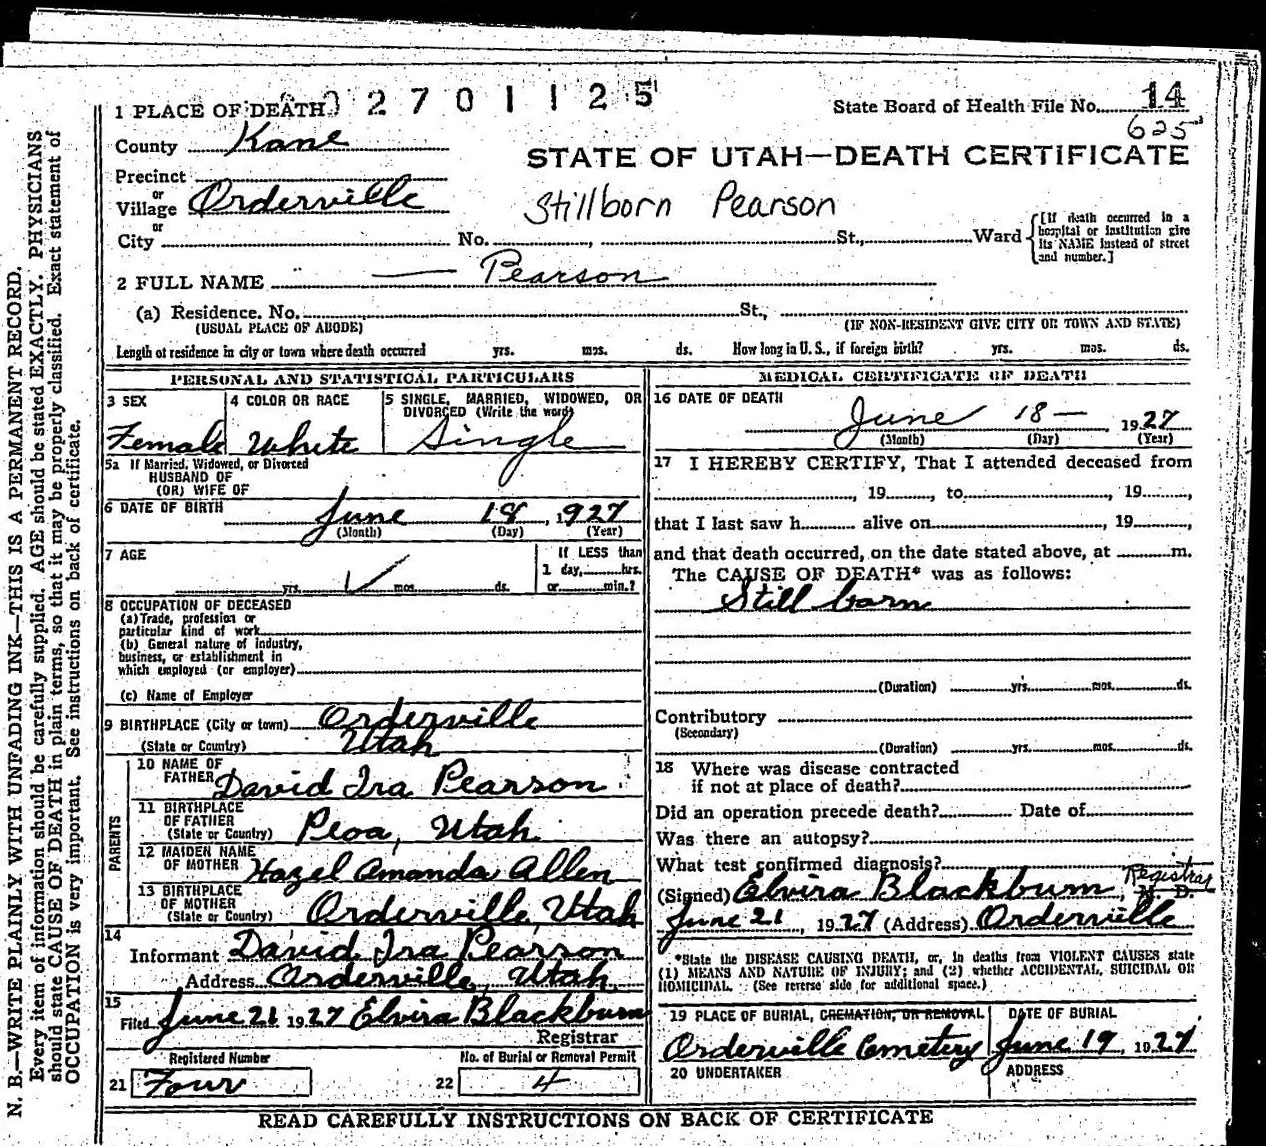 N. B.—WRITE PLAINLY WITH UNFADING INK—THIS IS A PERMANENT RECORD.
Every item of information should be carefully supplied. AGE should be stated EXACTLY. PHYSICIANS
should state CAUSE OF DEATH in plain terms, so that it may be properly classified. Exact statement of
OCCUPATION is very important. See instructions on back of certificate.
2 7 0 1 1 2 5
1 PLACE OF DEATH
State Board of Health File No. 14
625
County Kane
STATE OF UTAH—DEATH CERTIFICATE
Precinct
or
Village Orderville
Stillborn Pearson
or
City No. , St., Ward
[If death occurred in a
hospital or institution give
its NAME instead of street
and number.]
2 FULL NAME — Pearson
(a) Residence. No. St.,
(USUAL PLACE OF ABODE) (IF NON-RESIDENT GIVE CITY OR TOWN AND STATE)
Length of residence in city or town where death occurred yrs. mos. ds. How long in U. S., if foreign birth? yrs. mos. ds.
PERSONAL AND STATISTICAL PARTICULARS
3 SEX
Female
4 COLOR OR RACE
White
5 SINGLE, MARRIED, WIDOWED, OR
DIVORCED (Write the word)
Single
5a If Married, Widowed, or Divorced
HUSBAND OF
(OR) WIFE OF
6 DATE OF BIRTH
June 18, 1927
(Month) (Day) (Year)
7 AGE
yrs. mos. ds.
If LESS than
1 day, hrs.
or min.?
8 OCCUPATION OF DECEASED
(a) Trade, profession or
particular kind of work
(b) General nature of industry,
business, or establishment in
which employed (or employer)
(c) Name of Employer
9 BIRTHPLACE (City or town) Orderville
(State or Country) Utah
PARENTS
10 NAME OF
FATHER David Ira Pearson
11 BIRTHPLACE
OF FATHER
(State or Country) Peoa, Utah
12 MAIDEN NAME
OF MOTHER Hazel Amanda Allen
13 BIRTHPLACE
OF MOTHER
(State or Country) Orderville, Utah
14
Informant David Ira Pearson
Address Orderville, Utah
15
Filed June 21 1927 Elvira Blackburn
Registrar
Registered Number
21 Four
No. of Burial or Removal Permit
22 4
MEDICAL CERTIFICATE OF DEATH
16 DATE OF DEATH
June 18 — , 1927
(Month) (Day) (Year)
17 I HEREBY CERTIFY, That I attended deceased from
, 19 , to , 19 ,
that I last saw h alive on , 19 ,
and that death occurred, on the date stated above, at m.
The CAUSE OF DEATH* was as follows:
Still born
(Duration) yrs. mos. ds.
Contributory
(Secondary)
(Duration) yrs. mos. ds.
18 Where was disease contracted
if not at place of death?
Did an operation precede death? Date of
Was there an autopsy?
What test confirmed diagnosis?
Registrar
(Signed) Elvira Blackburn, M. D.
June 21, 1927 (Address) Orderville
*State the DISEASE CAUSING DEATH, or, in deaths from VIOLENT CAUSES state
(1) MEANS AND NATURE OF INJURY; and (2) whether ACCIDENTAL, SUICIDAL OR
HOMICIDAL. (See reverse side for additional space.)
19 PLACE OF BURIAL, CREMATION, OR REMOVAL
Orderville Cemetery
DATE OF BURIAL
June 19, 1927
20 UNDERTAKER
ADDRESS
READ CAREFULLY INSTRUCTIONS ON BACK OF CERTIFICATE